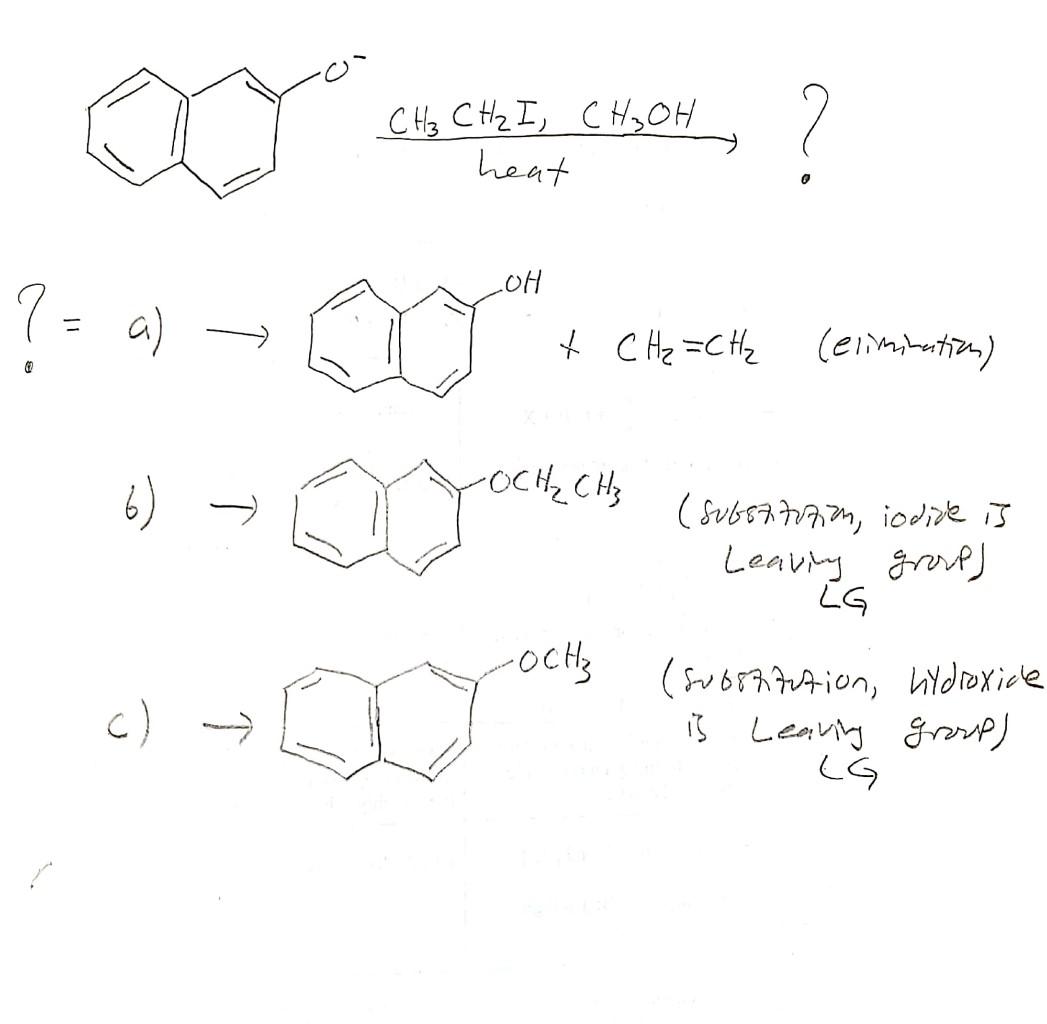 O⁻
CH₃CH₂I, CH₃OH
heat
?
? = a) → OH + CH₂=CH₂ (elimination)
b) → OCH₂CH₃ (substitution, iodide is
Leaving group)
LG
c) → OCH₃ (substitution, hydroxide
is Leaving group)
LG